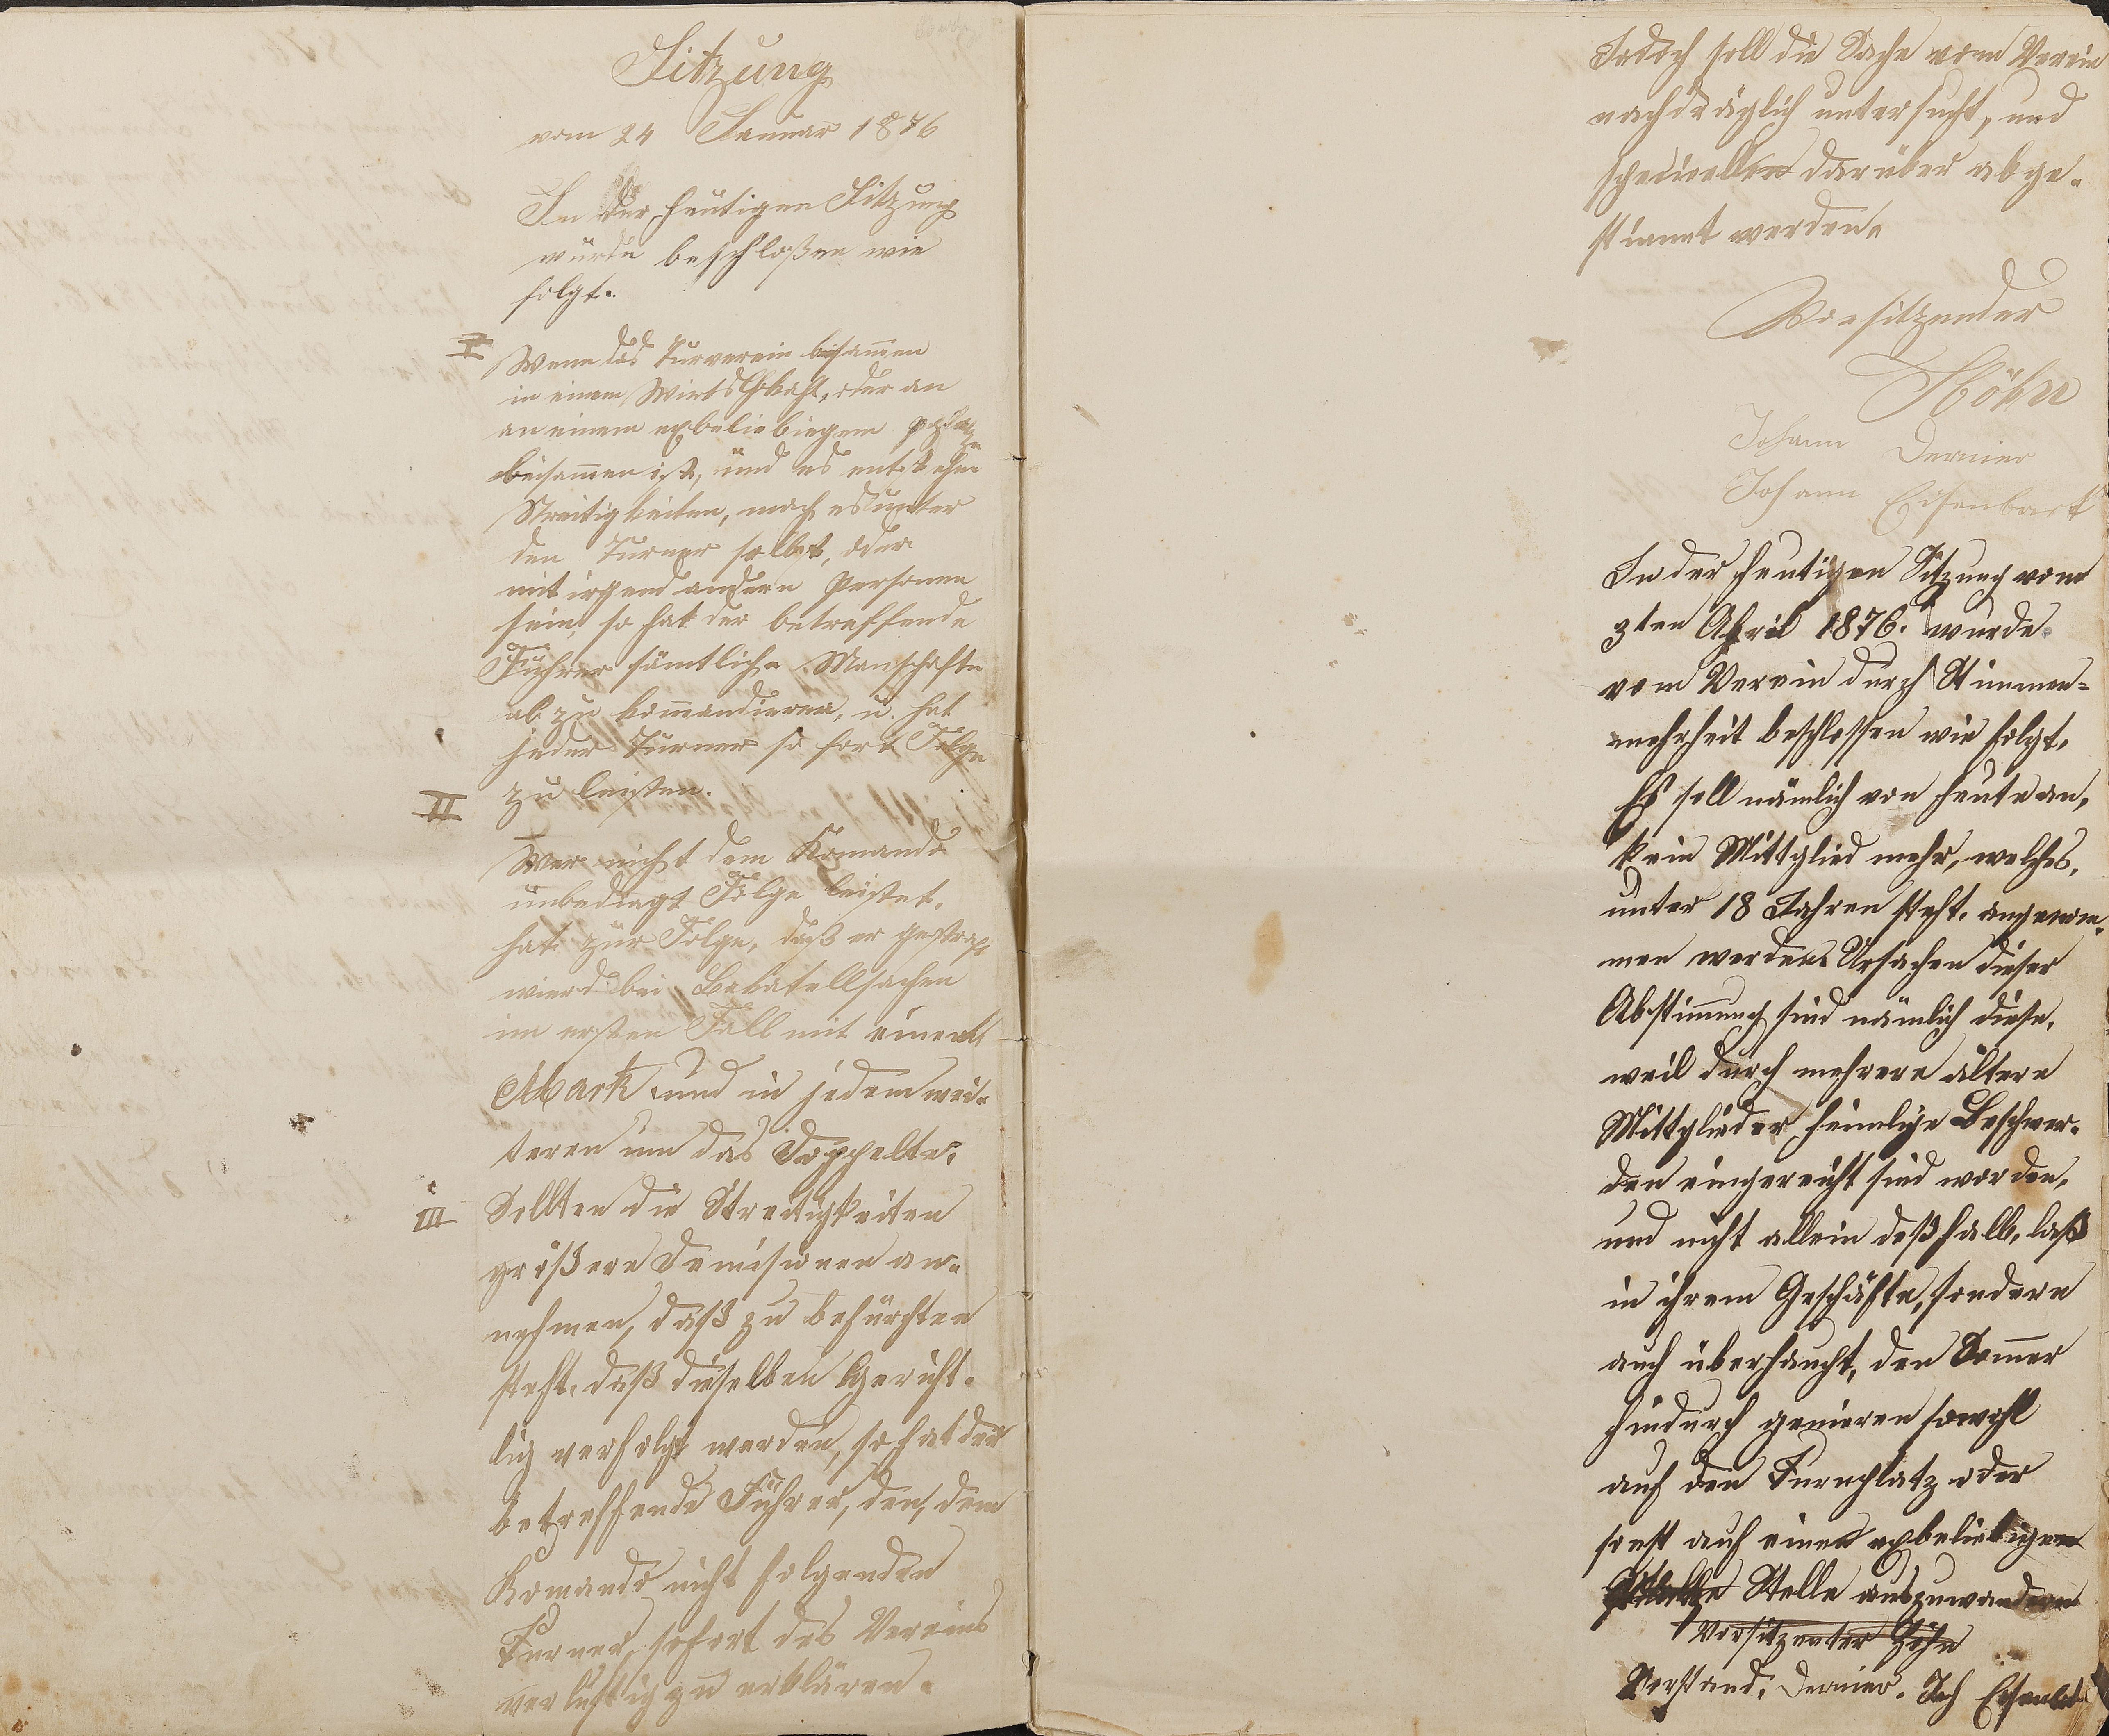 Sitzung
vom 24 Januar 1876
In der heutigen Sitzung
würde beschloßen wie
folgt.
I Wenn das Turverein beisamen
in einem Wirtdschaft, oder an
an einem exbeliebiegem
beisamen ist, und es entstehen
Streitigkeiten, mach es unter
den Turner selbst, oder
mit irgend andern Personen
sein, so hat der betreffende
Führer sämtliche Manschafte
ab zu komandieren, u. hat
jeder Turner so fort Folge
zu leisten.
II Wer nicht dem Komando
unbedingt Folge leistet,
hat zur Folge, daß er gestraft
wierd bei Bakatellsachen
im ersten Fall mit einer
Mark und in jedem wei-
teren um das Doppelte.
III Sollten die Streitigkeiten
größere Demisionen an-
nehmen, daß zu befürchten
steht, daß dieselben Gericht-
lig verfolgt werden, so hat der
betreffende Führer, den, dem
Komando nicht folgenden
Turner, sofort des Vereins
verlustig zu erklären.
Jedoch soll die Sache vom Verein
nachdräglich untersucht, und
speciellen darüber abge-
stimmt werden.
Vorsitzender
Höhn
Johann Dernier
Johann Eisenbart
In der heutigen Sitzung vom
3ten April 1876. wurde
vom Verein durch Stimmen-
mehrheit beschlossen wie folgt.
Es soll nämlich von heute an,
kein Mittglied mehr, welches,
unter 18 Jahren steht, angenom-
men werden. Ursachen dieser
Abstimung sind nämlich diese,
weil durch mehrere ältere
Mittglieder heimlige Beschwer-
den eingereicht sind worden,
und nicht allein deßhalb, laß
in ihrem Geschäfte, sondern
auch überhaucht, den Somer
hindurch genieren sowohl
auf den Turnplatz oder
sonst auf einer exbeliebigen
Stelle auszuwandern
Vorsitzenter Höhn
Vorstand. Dernier. Joh Eisenbart